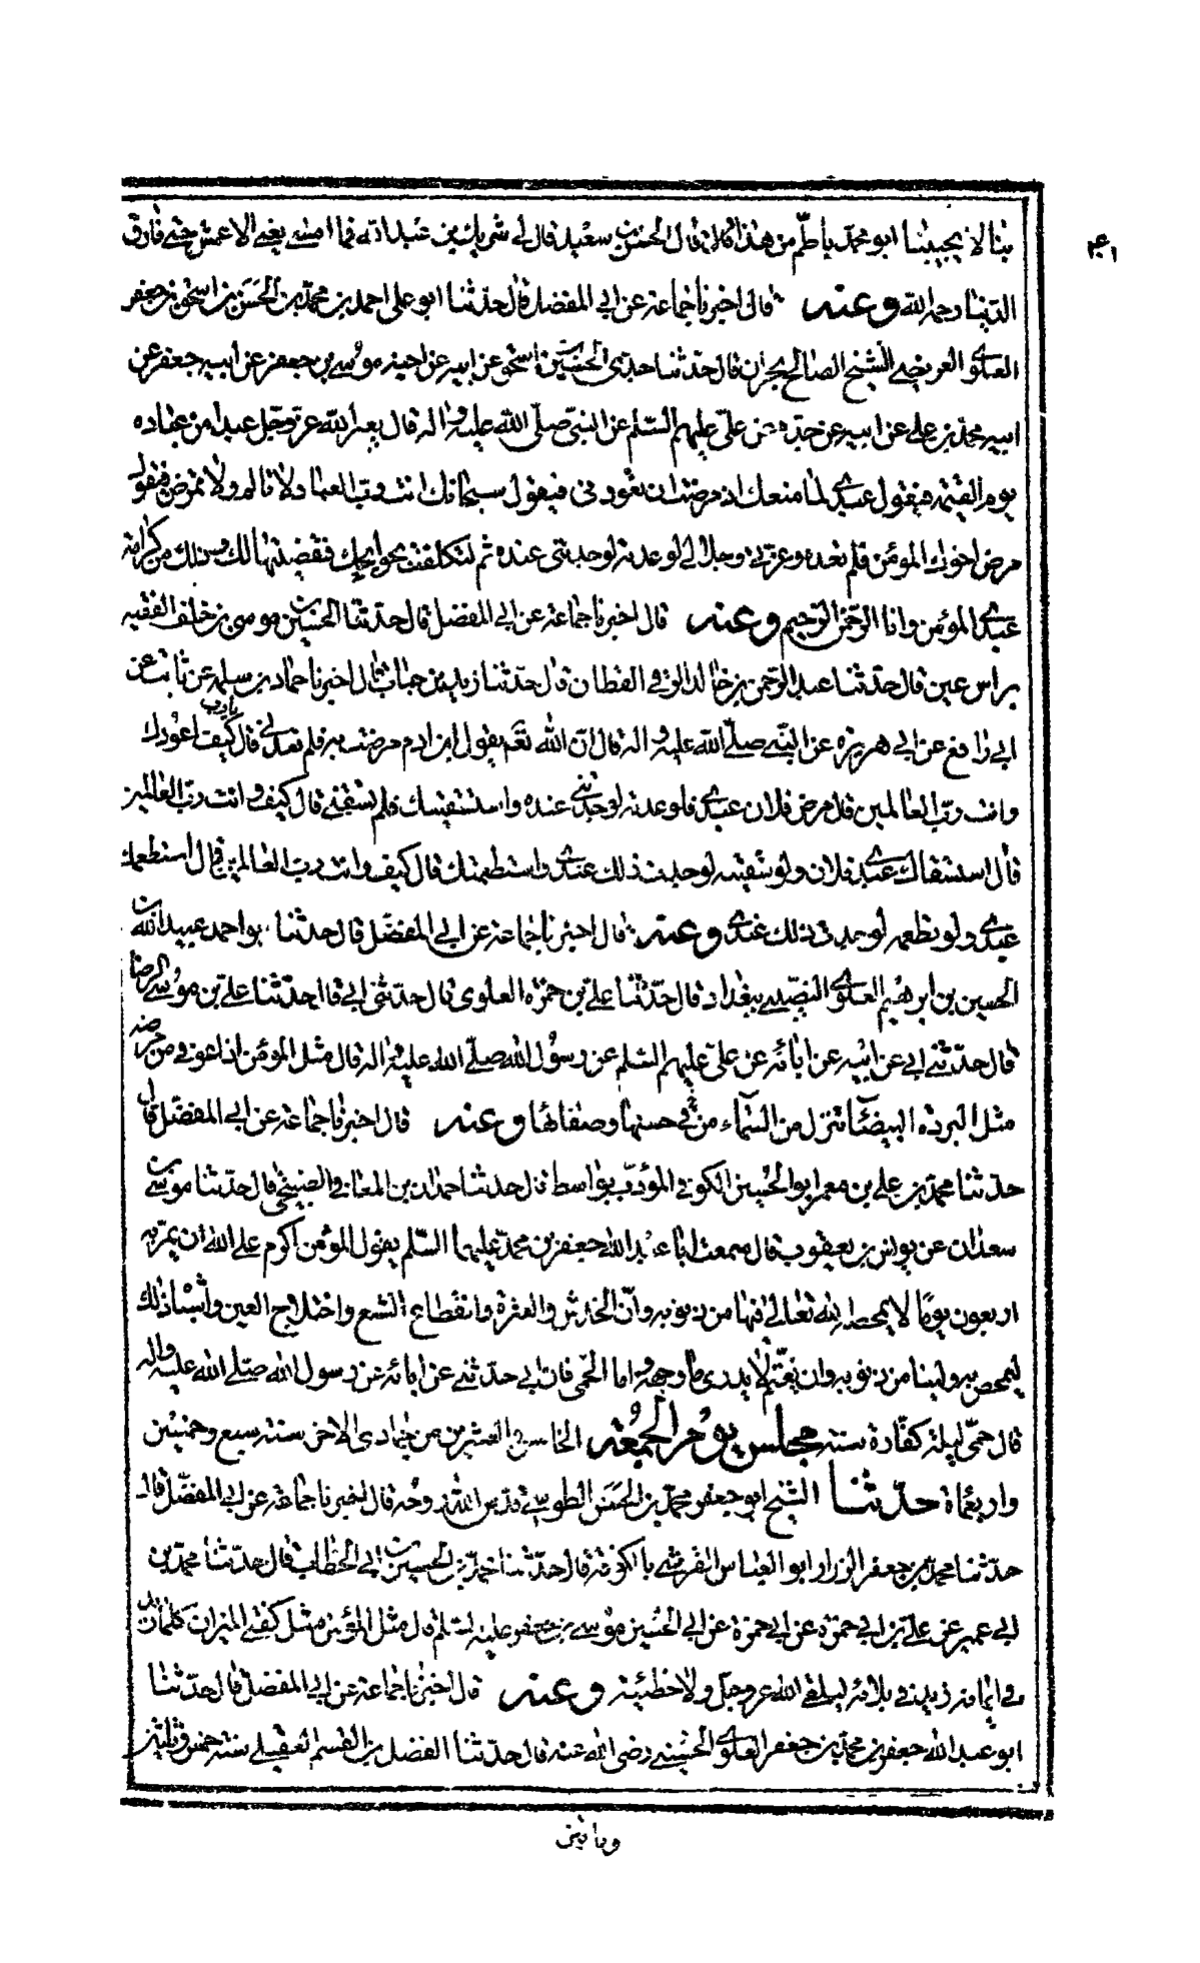 بنا لا يجيبنا ابو محمد باطم من هذا قال قال الحسن بن سعيد قال لى شريك بن عبد الله فما امسى يعنى الاعمش حتى فارق
الدنيا رحمه الله وعنه قال اخبرنا جماعة عن ابى المفضل قال حدثنا ابو على احمد بن محمد بن الحسن بن اسحق بن جعفر
العلوى العريضى الشيخ الصالح بحران قال حدثنا جدى الحسين بن اسحق عن ابيه عن اخيه موسى بن جعفر عن ابيه جعفر عن
ابيه محمد بن على عن ابيه عن جده عن على عليهم السلم عن النبى صلى الله عليه واله قال يعير الله عز وجل عبدا من عباده
يوم القيمة فيقول عبدى ما منعك اذ مرضت ان تعودنى فيقول سبحانك انت رب العباد لا تالم ولا تمرض فيقول
مرض اخوك المؤمن فلم تعده وعزتى وجلالى لو عدته لوجدتنى عنده ثم لتكلفت بحوايجك فقضيتها لك وذلك من كرامة
عبدى المؤمن وانا الرحمن الرحيم وعنه قال اخبرنا جماعة عن ابى المفضل قال حدثنا الحسين بن موسى بن خلف الفقيه
براس عين قال حدثنا عبد الرحمن بن خالد الرقى القطان قال حدثنا زيد بن حباب قال اخبرنا حماد بن سلمه عن ثابت عن
ابى رافع عن ابى هريره عن النبى صلى الله عليه واله قال ان الله تعم يقول ابن ادم مرضت به فلم تعدنى قال يا رب كيف اعودك
وانت رب العالمين قال مرض فلان عبدى فلو عدته لوجدتنى عنده واستسقيتك فلم تسقنى قال كيف وانت رب العالمين
قال استسقاك عبدى فلان ولو سقيته لوجدت ذلك عندى واستطعمتك قال كيف وانت رب العالمين قال استطعمك
عبدى ولو تطعمه لوجدت ذلك عندى وعنه قال اخبرنا جماعة عن ابى المفضل قال حدثنا ابو احمد عبيد الله بن
الحسين بن ابرهيم العلوى النصيبى ببغداد قال حدثنا على بن حمزه العلوى قال حدثنى ابى قال حدثنا على بن موسى الرضا
قال حدثنى ابى عن ابيه عن ابائه عن على عليهم السلم عن رسول الله صلى الله عليه واله قال مثل المؤمن اذا عوفى من مرضه
مثل البردة البيضاء تنزل من السماء من فى حسنها وصفائها وعنه قال اخبرنا جماعة عن ابى المفضل قال
حدثنا محمد بن على بن معمر ابو الحسين الكوفى المؤدب بواسط قال حدثنا حمدان بن المعافى الصبيحى قال حدثنا موسى بن
سعدان عن يونس بن يعقوب قال سمعت ابا عبد الله جعفر بن محمد عليهما السلم يقول المؤمن اكرم على الله ان يمر به
اربعون يوما لا يمحصه الله تعالى فيها من ذنوبه وان الخدش والعثرة وانقطاع الشسع واختلاج العين واشباه ذلك
ليمحص به ولينا من ذنوبه وان يغتم لا يدرى ما وجهه واما الحمى فان ابى حدثنى عن ابائه عن رسول الله صلى الله عليه واله
قال حمى ليلة كفارة سنة مجلس يوم الجمعة الخامس والعشرين من جمادى الاخر سنة سبع وخمسين
واربعمأة حدثنا الشيخ ابو جعفر محمد بن الحسن الطوسى قدس الله روحه قال اخبرنا جماعة عن ابى المفضل قال
حدثنا محمد بن جعفر الرزاز ابو العباس القرشى بالكوفة قال حدثنا محمد بن الحسين بن ابى الخطاب قال حدثنا محمد بن
ابى عمير عن على بن ابى حمزة عن ابى حمزة عن ابى الحسين موسى بن جعفر عليه السلم قال مثل المؤمن مثل كفتى الميزان كلما زيد
فى ايمانه زيد فى بلائه ليلقى الله عز وجل ولا خطيئة وعنه قال اخبرنا جماعة عن ابى المفضل قال حدثنا
ابو عبد الله جعفر بن محمد بن جعفر العلوى الحسينى رضى الله عنه قال حدثنا الفضل بن القسم العقيلى سنة خمس وثلثين
وماتين